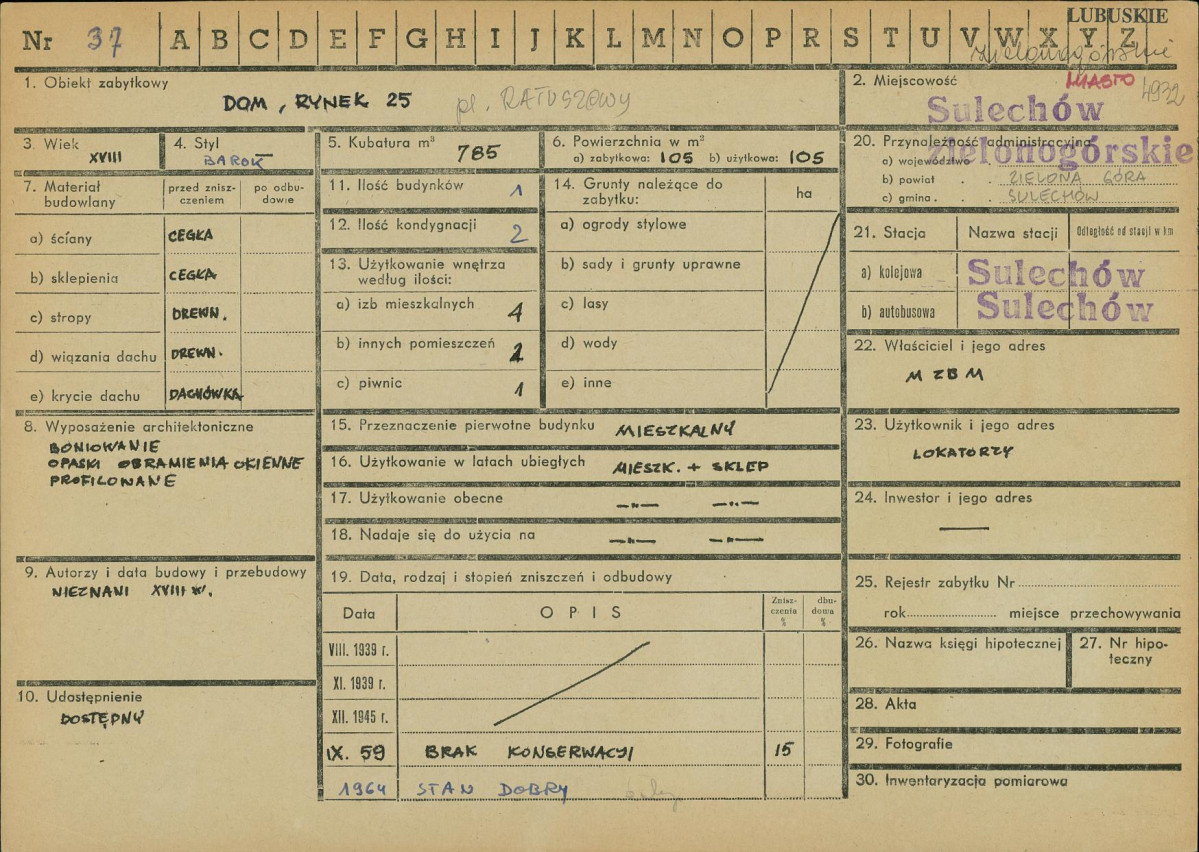 LUBUSKIE
Nr 37 A B C D E F G H I J K L M N O P R S T U V W X Y Z
Zielonogórskie
1. Obiekt zabytkowy
DOM, RYNEK 25 pl. RATUSZOWY
2. Miejscowość MIASTO 4932
Sulechów
3. Wiek
XVIII
4. Styl
BAROK
5. Kubatura m³ 785
6. Powierzchnia w m²
a) zabytkowa: 105 b) użytkowa: 105
20. Przynależność administracyjna
a) województwo Zielonogórskie
b) powiat . . ZIELONA GÓRA
c) gmina . . . SULECHÓW
7. Materiał budowlany
przed zniszczeniem
po odbudowie
a) ściany CEGŁA
b) sklepienia CEGŁA
c) stropy DREWN.
d) wiązania dachu DREWN.
e) krycie dachu DACHÓWKA
11. Ilość budynków 1
12. Ilość kondygnacji 2
13. Użytkowanie wnętrza
według ilości:
a) izb mieszkalnych 4
b) innych pomieszczeń
c) piwnic 1
14. Grunty należące do
zabytku:
ha
a) ogrody stylowe
b) sady i grunty uprawne
c) lasy
d) wody
e) inne
21. Stacja Nazwa stacji Odległość od stacji w km
a) kolejowa Sulechów
b) autobusowa Sulechów
22. Właściciel i jego adres
MZBM
8. Wyposażenie architektoniczne
BONIOWANIE
OPASKI OBRAMIENIA OKIENNE
PROFILOWANE
15. Przeznaczenie pierwotne budynku MIESZKALNY
16. Użytkowanie w latach ubiegłych MIESZK. + SKLEP
17. Użytkowanie obecne —"— —"—
18. Nadaje się do użycia na —"— —"—
23. Użytkownik i jego adres
LOKATORZY
24. Inwestor i jego adres
—
9. Autorzy i data budowy i przebudowy
NIEZNANI XVIII w.
10. Udostępnienie
DOSTĘPNY
19. Data, rodzaj i stopień zniszczeń i odbudowy
Data OPIS Zniszczenia % dbudowa %
VIII. 1939 r.
XI. 1939 r.
XII. 1945 r.
IX. 59 BRAK KONSERWACJI 15
1964 STAN DOBRY
25. Rejestr zabytku Nr
rok miejsce przechowywania
26. Nazwa księgi hipotecznej
27. Nr hipoteczny
28. Akta
29. Fotografie
30. Inwentaryzacja pomiarowa